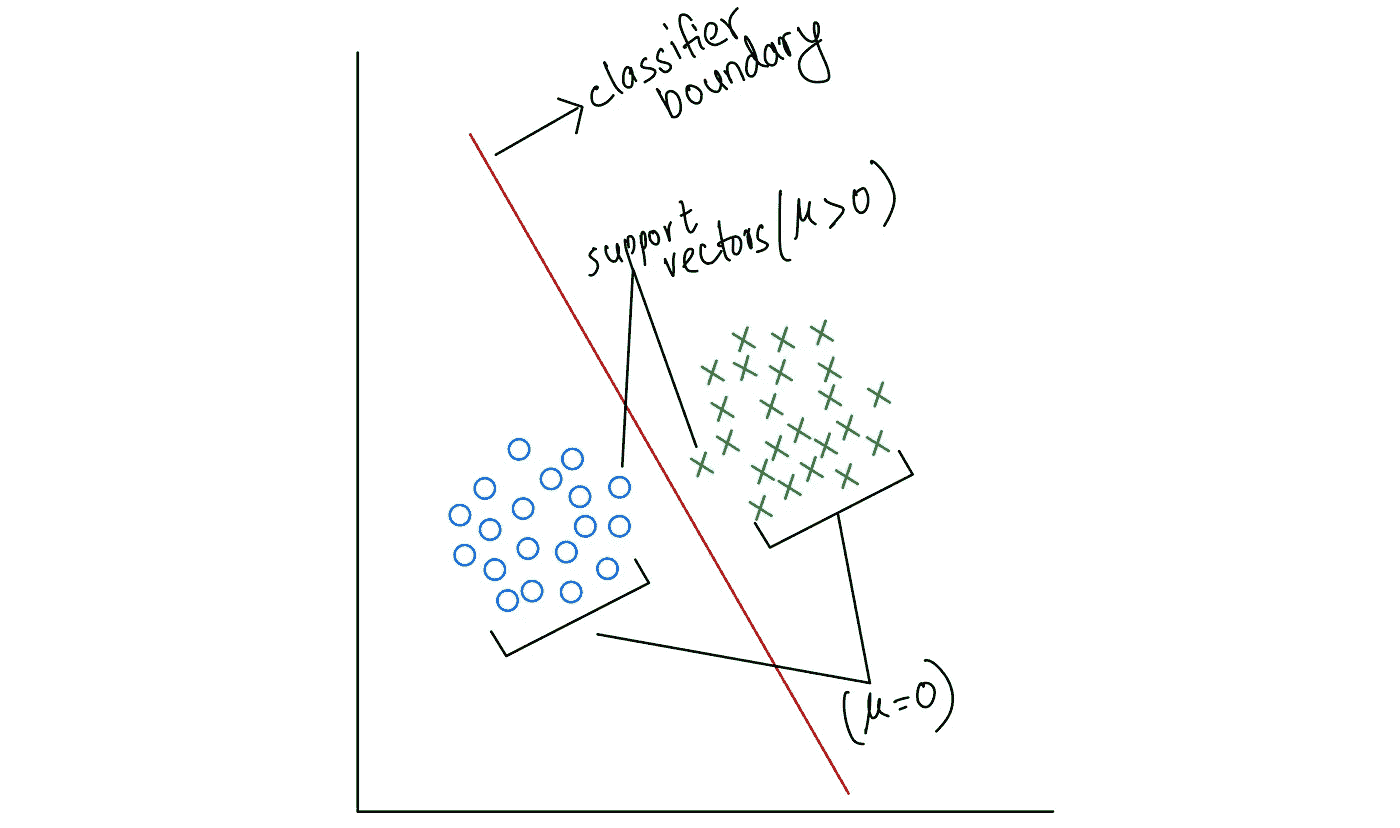 classifier
boundary
support
vectors (μ>0)
(μ=0)